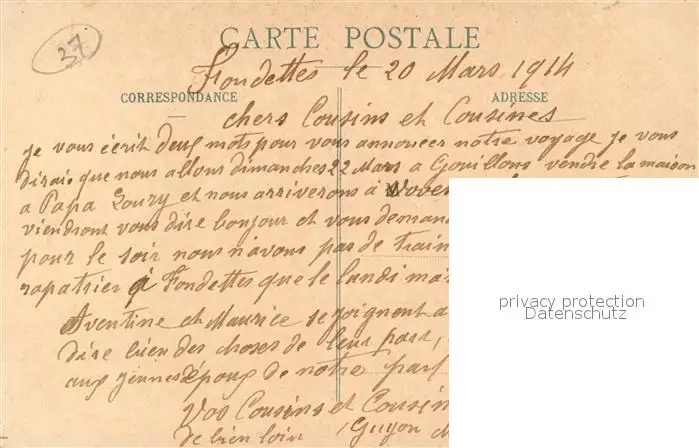 37
CARTE POSTALE
Fondettes le 20 Mars 1914
CORRESPONDANCE
ADRESSE
chers Cousins et Cousines
je vous écrit deux mots pour vous annoncer notre voyage je vous
dirais que nous allons dimanches 22 Mars a Gouillons vendre la maison
a Papa Loury et nous arriverons a
viendront vous dire bonjour et vous deman
pour le soir nous n'avons pas de train
rapatrier a Fondettes que le lundi ma
Aventine et Maurice se joignent a
dire bien des choses de leur part,
aux jeunes époux de notre part
Vos Cousins et Cousin
de bien loin Guyon
privacy protection
Datenschutz